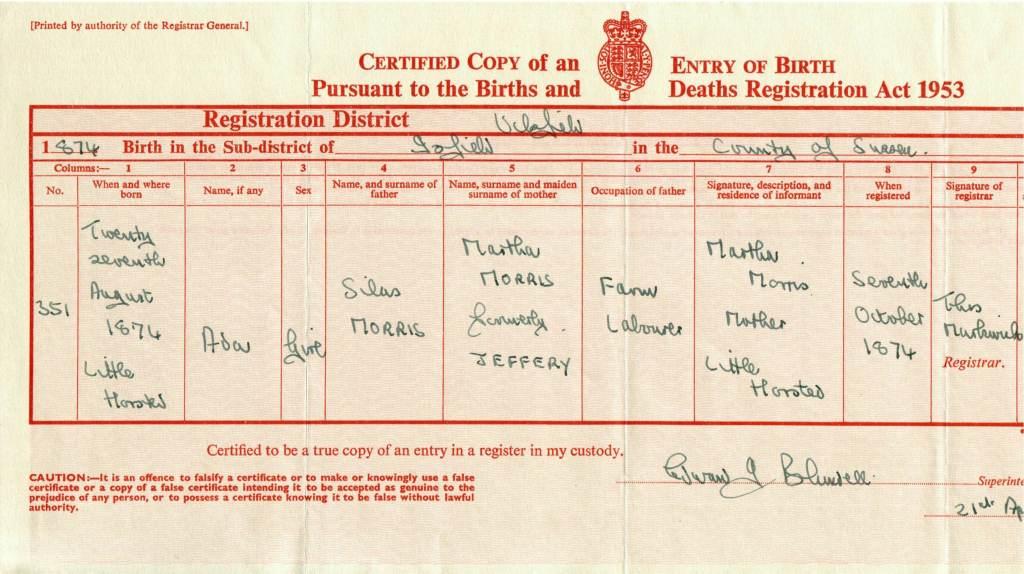 [Printed by authority of the Registrar General.]
CERTIFIED COPY of an ENTRY OF BIRTH
Pursuant to the Births and Deaths Registration Act 1953
Registration District Uckfield
1874 Birth in the Sub-district of Isfield in the County of Sussex.
Columns:— 1 2 3 4 5 6 7 8 9
No. When and where born Name, if any Sex Name, and surname of father Name, surname and maiden surname of mother Occupation of father Signature, description, and residence of informant When registered Signature of registrar
351
Twenty
seventh
August
1874
Little
Horsted
Ada
Girl
Silas
MORRIS
Martha
MORRIS
formerly
JEFFERY
Farm
Labourer
Martha
Morris
Mother
Little
Horsted
Seventh
October
1874
Thos
Registrar.
Certified to be a true copy of an entry in a register in my custody.
CAUTION:—It is an offence to falsify a certificate or to make or knowingly use a false
certificate or a copy of a false certificate intending it to be accepted as genuine to the
prejudice of any person, or to possess a certificate knowing it to be false without lawful
authority.
Edward J Blundell
Superinte
21st Ap